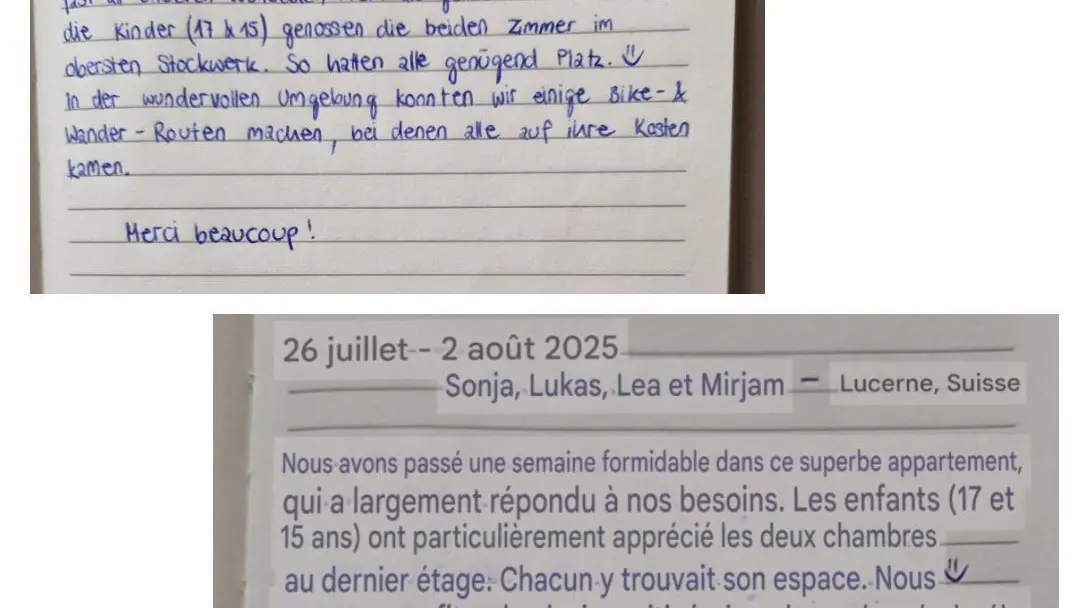 die Kinder (17 & 15) genossen die beiden Zimmer im
obersten Stockwerk. So hatten alle genügend Platz.
In der wundervollen Umgebung konnten wir einige Bike- &
Wander-Routen machen, bei denen alle auf ihre Kosten
kamen.
Merci beaucoup!
26 juillet - 2 août 2025
Sonja, Lukas, Lea et Mirjam - Lucerne, Suisse
Nous avons passé une semaine formidable dans ce superbe appartement,
qui a largement répondu à nos besoins. Les enfants (17 et
15 ans) ont particulièrement apprécié les deux chambres
au dernier étage. Chacun y trouvait son espace. Nous